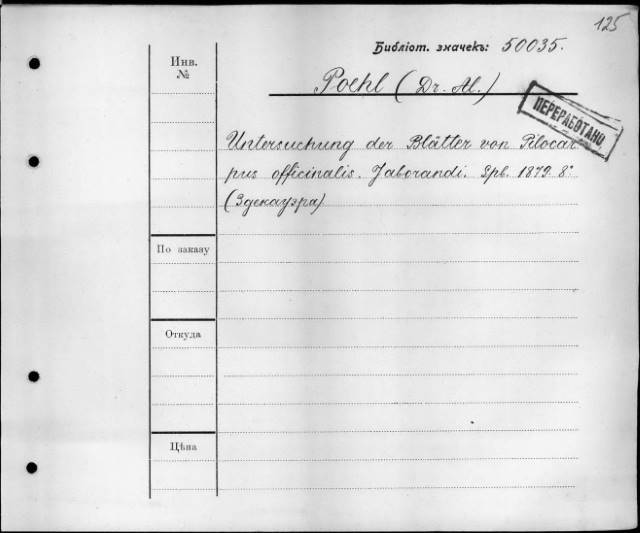 125
Библіот. значекъ: 50035.
Инв.
№
Poehl (Dr. Al.)
ПЕРЕРАБОТАНО
Untersuchung der Blätter von Pilocar
pus officinalis. Jaborandi. Spb. 1879. 8°
(Здекауэра)
По заказу
Откуда
Цѣна